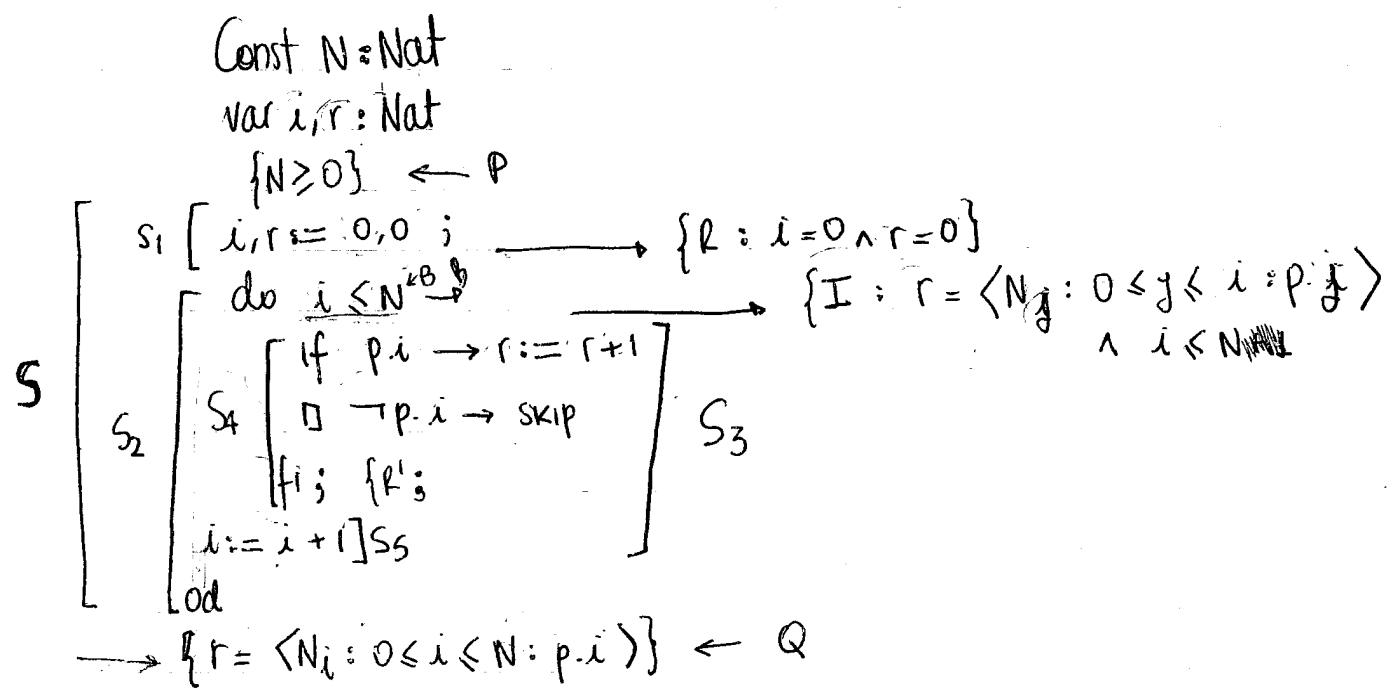 Const N : Nat
var i, r : Nat
{N ≥ 0} ← P
S₁ [ i, r := 0, 0 ; → {R : i = 0 ∧ r = 0}
do i ≤ N ← B → {I : r = ⟨N j : 0 ≤ y ≤ i : p. j⟩
∧ i ≤ N
if p.i → r := r + 1
S
S₂
S₄ [] ¬p.i → skip
S₃
fi ; {R' ;
i := i + 1] S₅
od
→ {r = ⟨N i : 0 ≤ i ≤ N : p.i⟩} ← Q